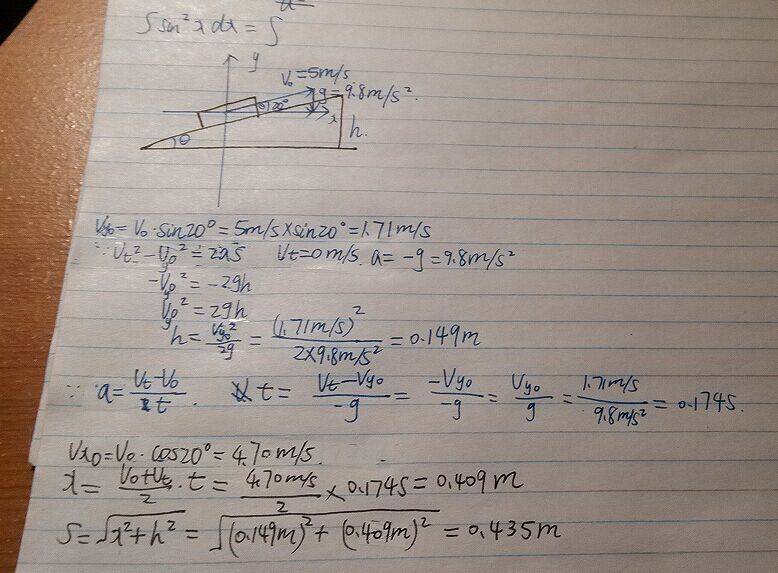 ∫sin²xdx = ∫
y
V₀=5m/s
g=9.8m/s².
θ 20°
x
h.
θ
Vy₀=V₀·sin20°=5m/s×sin20°=1.71m/s
∵ Vt²-Vy₀²=2as Vt=0m/s. a=-g=9.8m/s²
-Vy₀²=-2gh
Vy₀²=2gh
h=Vy₀²/2g=(1.71m/s)²/2×9.8m/s²=0.149m
∵ a=Vt-V₀/t. t=Vt-Vy₀/-g=-Vy₀/-g=Vy₀/g=1.71m/s/9.8m/s²=0.174s.
Vx₀=V₀·cos20°=4.70m/s.
x=V₀+Vt/2·t=4.70m/s/2×0.174s=0.409m
S=√x²+h²=√(0.149m)²+(0.409m)²=0.435m